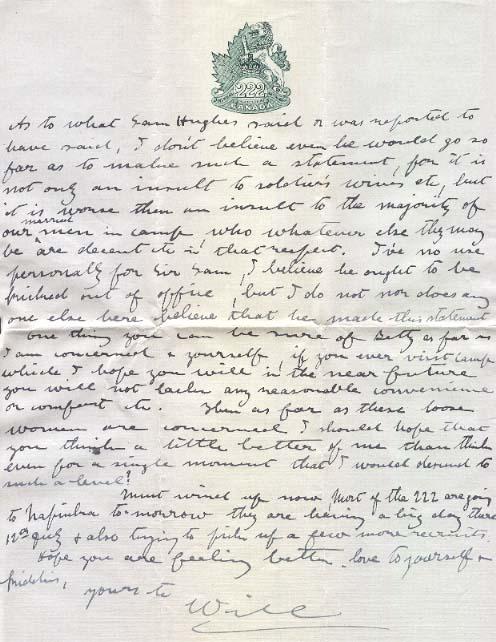 222
CANADA
As to what Sam Hughes said or was reported to
have said, I don't believe even he would go so
far as to make such a statement, for it is
not only an insult to soldier's wives etc, but
it is worse than an insult to the majority of
our married men in camp who whatever else they may
be are decent etc in that respect. I've no use
personally for Sir Sam, I believe he ought to be
kicked out of office, but I do not nor does any
one else here believe that he made this statement
one thing you can be sure of Betty as far as
I am concerned & yourself, if you ever visit camp
which I hope you will in the near future
you will not lack any reasonable convenience
or comfort etc. Then as far as these loose
women are concerned I should hope that
you think a little better of me than think
even for a single moment that I would descend to
such a level!
Must wind up now, Most of the 222 are going
to Napinka to-morrow they are having a big day there
12th July & also trying to pick up a few more recruits.
Hope you are feeling better. love to yourself &
kiddies,
yours etc
Will